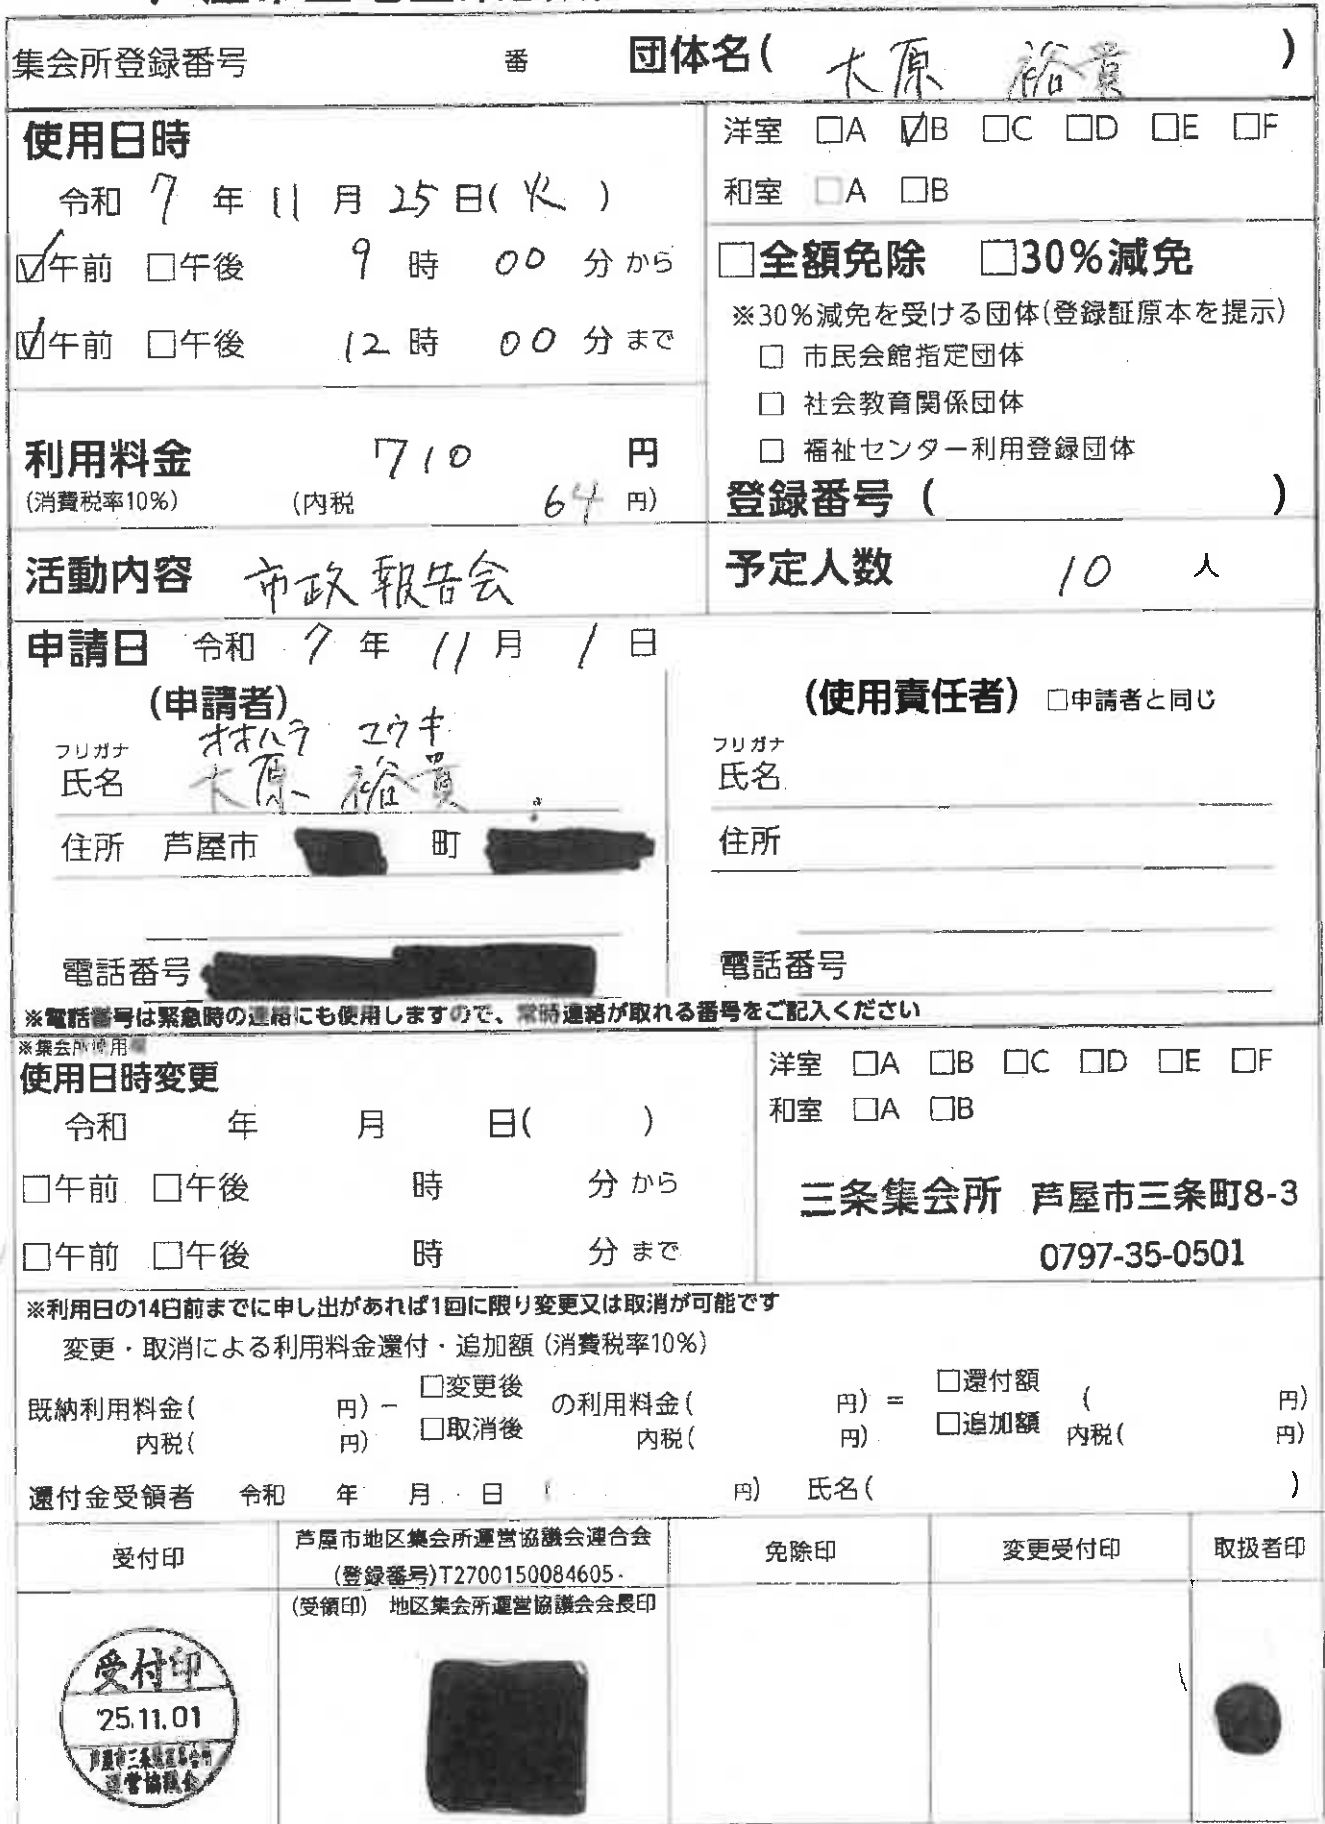 集会所登録番号 番 団体名( 大原 裕貴 )
使用日時
令和 7 年 11 月 25 日( 火 )
☑午前 □午後 9 時 00 分 から
☑午前 □午後 12 時 00 分 まで
洋室 □A ☑B □C □D □E □F
和室 □A □B
□全額免除 □30%減免
※30%減免を受ける団体(登録証原本を提示)
□ 市民会館指定団体
□ 社会教育関係団体
□ 福祉センター利用登録団体
登録番号 ( )
利用料金 710 円
(消費税率10%) (内税 64 円)
活動内容 市政報告会
予定人数 10 人
申請日 令和 7 年 11 月 1 日
(申請者)
フリガナ オオハラ ユウキ
氏名 大原 裕貴
住所 芦屋市 町
電話番号
(使用責任者) □申請者と同じ
フリガナ
氏名
住所
電話番号
※電話番号は緊急時の連絡にも使用しますので、常時連絡が取れる番号をご記入ください
※集会所使用欄
使用日時変更
令和 年 月 日( )
□午前 □午後 時 分 から
□午前 □午後 時 分 まで
洋室 □A □B □C □D □E □F
和室 □A □B
三条集会所 芦屋市三条町8-3
0797-35-0501
※利用日の14日前までに申し出があれば1回に限り変更又は取消が可能です
変更・取消による利用料金還付・追加額 (消費税率10%)
既納利用料金( 円) − □変更後 □取消後 の利用料金( 円) = □還付額 □追加額 ( 円)
内税( 円) 内税( 円) 内税( 円)
還付金受領者 令和 年 月 日 ( 円) 氏名( )
受付印
芦屋市地区集会所運営協議会連合会
(登録番号)T2700150084605
(受領印) 地区集会所運営協議会会長印
免除印
変更受付印
取扱者印
受付印
'25.11.01
芦屋市三条
運営協議会